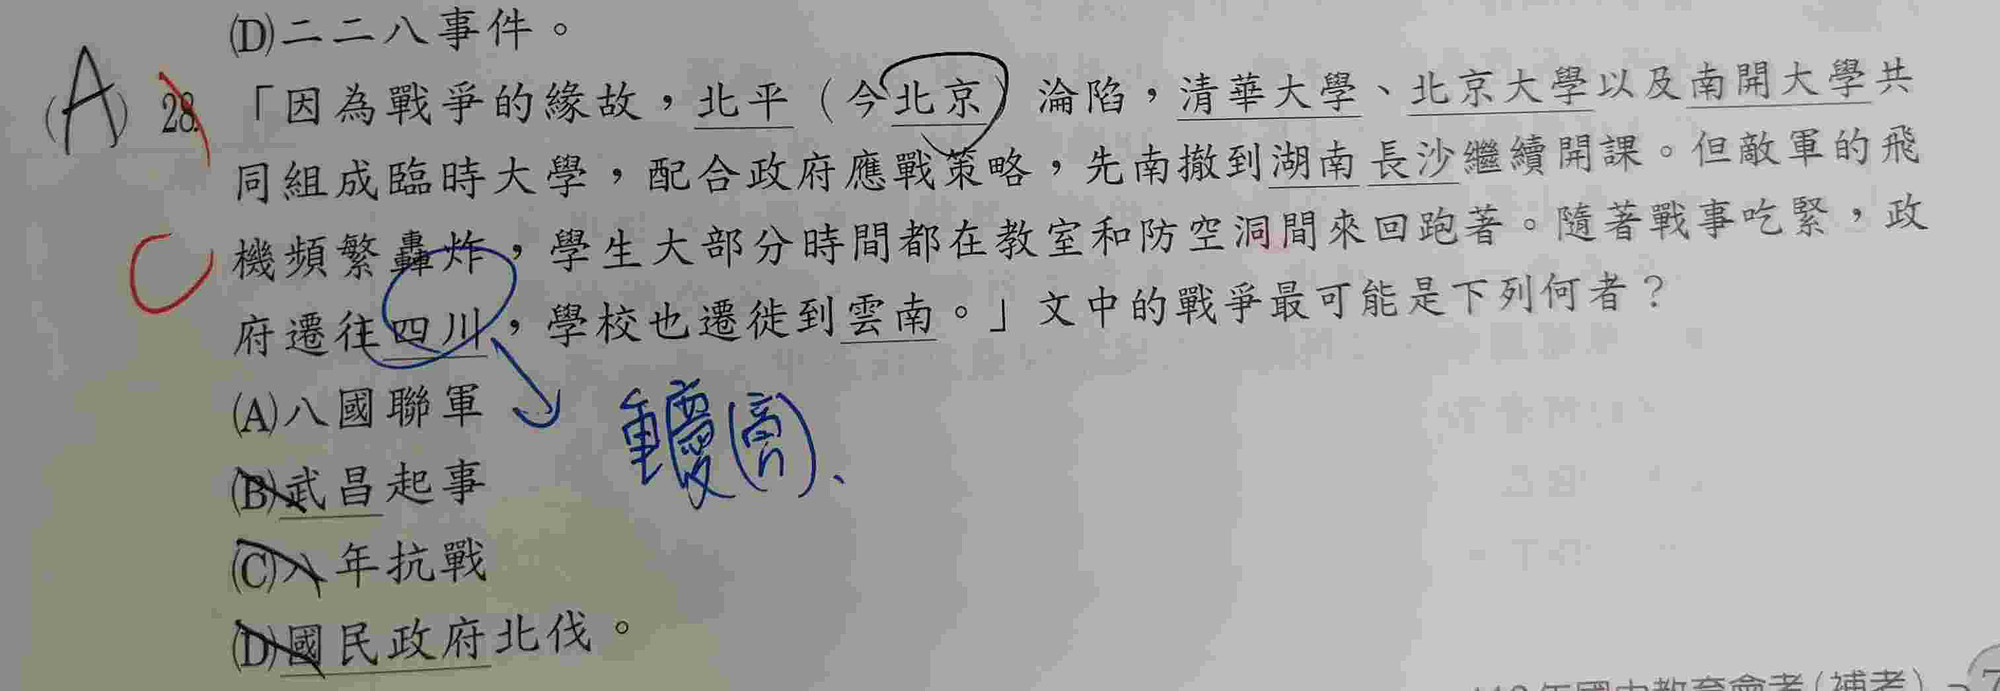 (D)二二八事件。
(A) 28. 「因為戰爭的緣故，北平（今北京）淪陷，清華大學、北京大學以及南開大學共
同組成臨時大學，配合政府應戰策略，先南撤到湖南長沙繼續開課。但敵軍的飛
C
機頻繁轟炸，學生大部分時間都在教室和防空洞間來回跑著。隨著戰事吃緊，政
府遷往四川，學校也遷徙到雲南。」文中的戰爭最可能是下列何者？
(A)八國聯軍
重慶(高)、
(B)武昌起事
(C)八年抗戰
(D)國民政府北伐。
年國中教育會考(補考) - 7